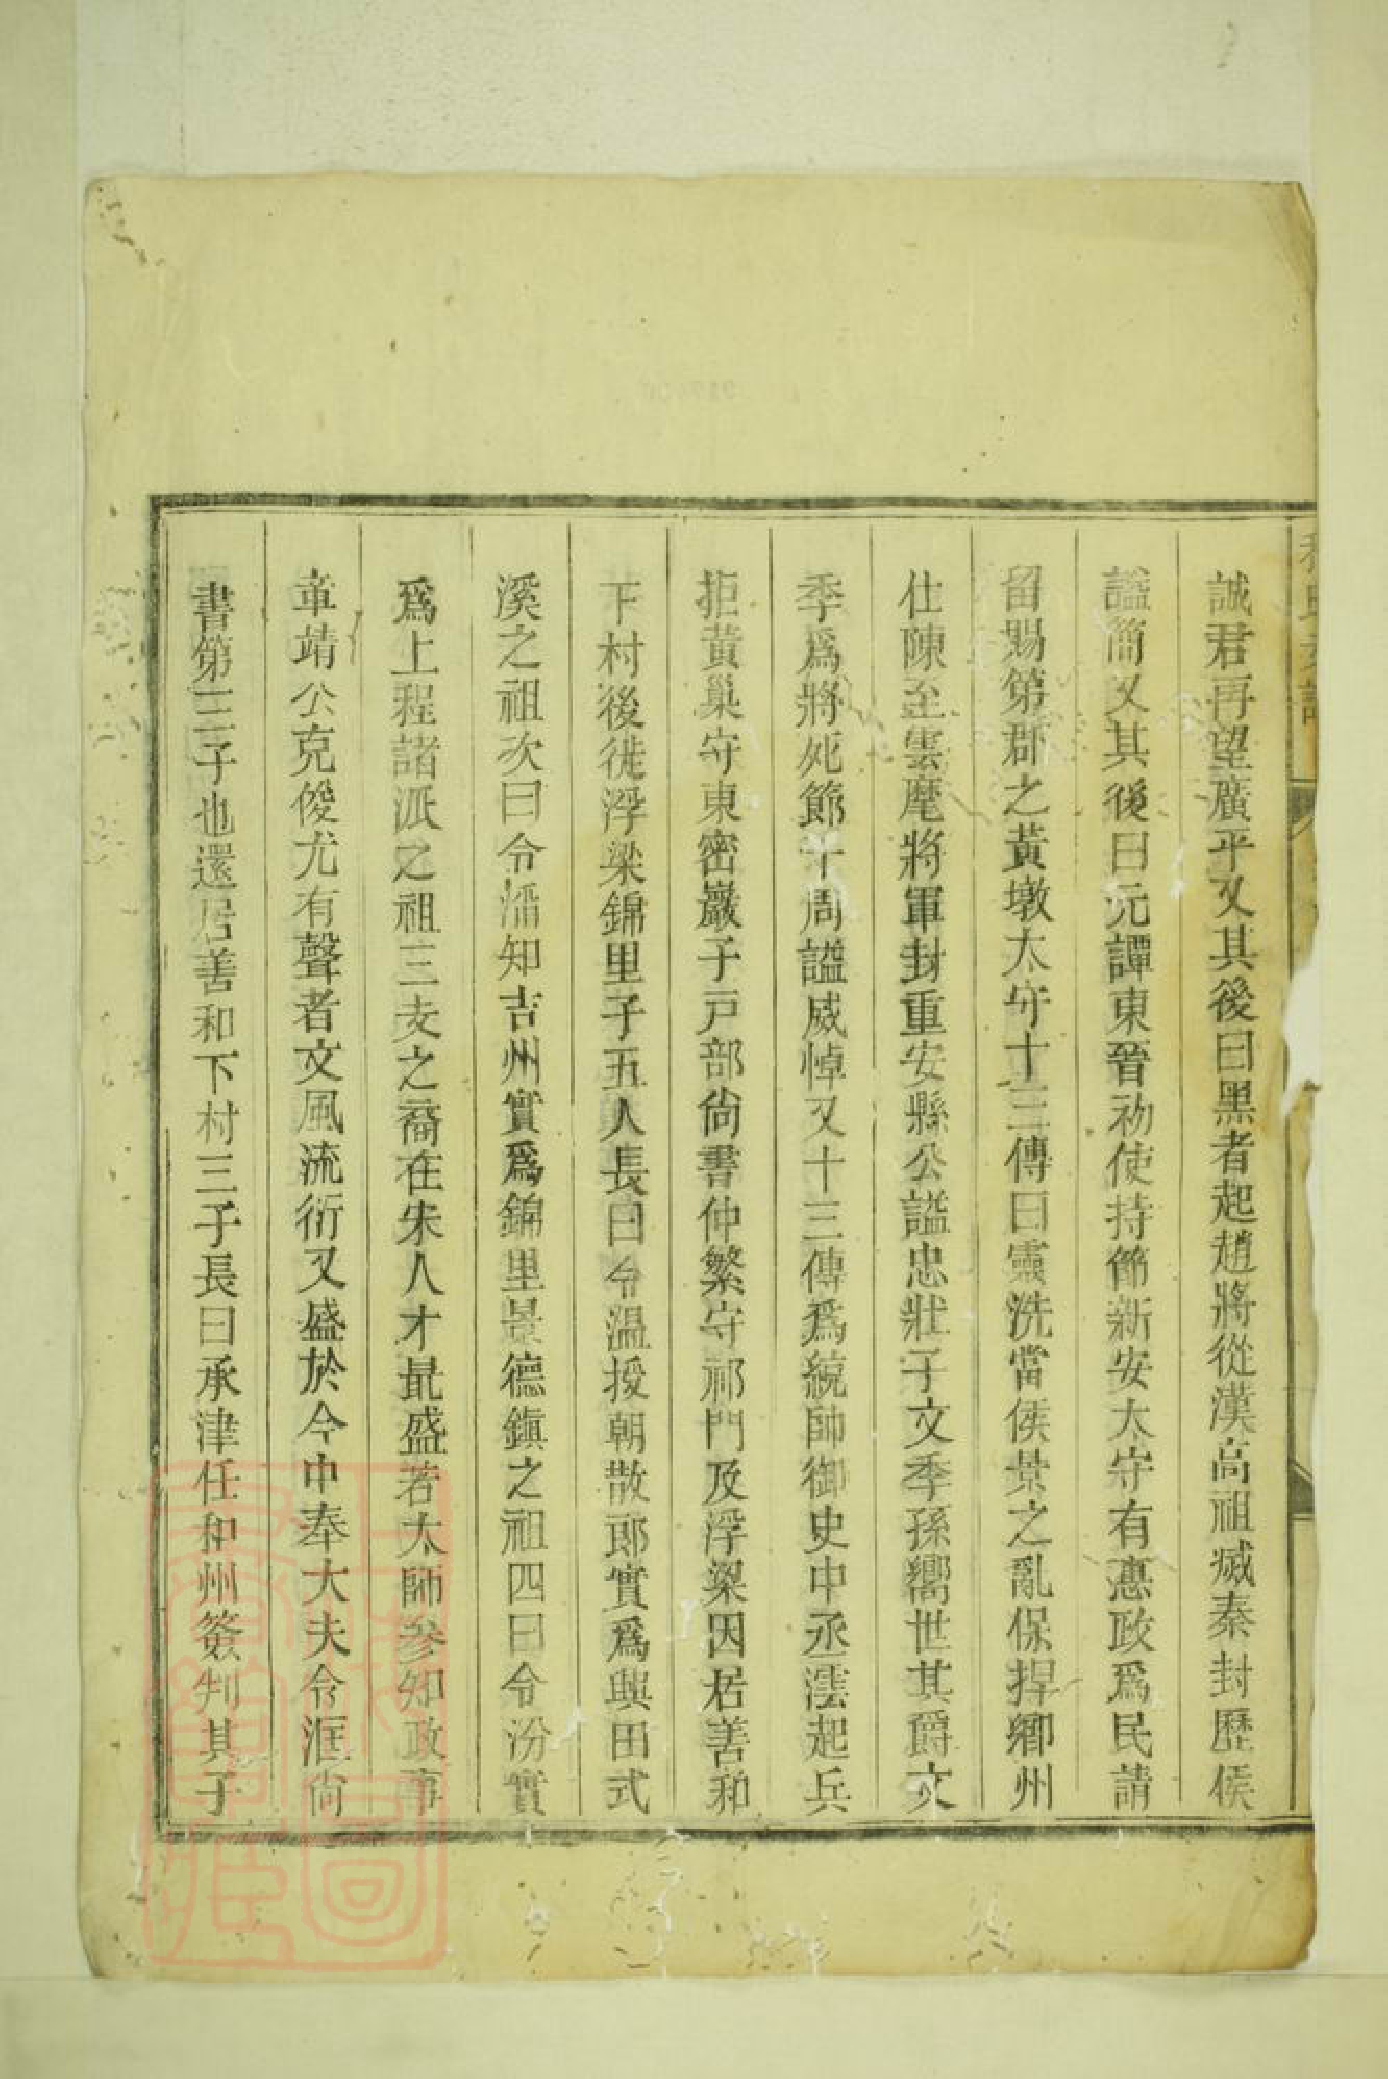 誠君再望廣平又其後曰黑者起趙將從漢高祖滅秦封歷侯
謚簡又其後曰元譚東晉初使持節新安太守有惠政爲民請
留賜第郡之黃墩太守十三傳曰靈洗當侯景之亂保捍鄉州
仕陳至雲麾將軍封重安縣公謚忠壯子文季孫嚮世其爵文
季爲將死節于周謚威悼又十三傳爲統帥御史中丞澐起兵
拒黃巢守東密巖子戸部尙書仲繁守祁門及浮梁因居善和
下村後徙浮梁錦里子五人長曰令溫授朝散郞實爲興田式
溪之祖次曰令潘知吉州實爲錦里景德鎮之祖四曰令汾實
爲上程諸派之祖三支之裔在宋人才最盛若太師參知政事
章靖公克俊尤有聲者文風流衍又盛於今中奉大夫令洭尙
書第三子也還居善和下村三子長曰承津任和州簽判其子